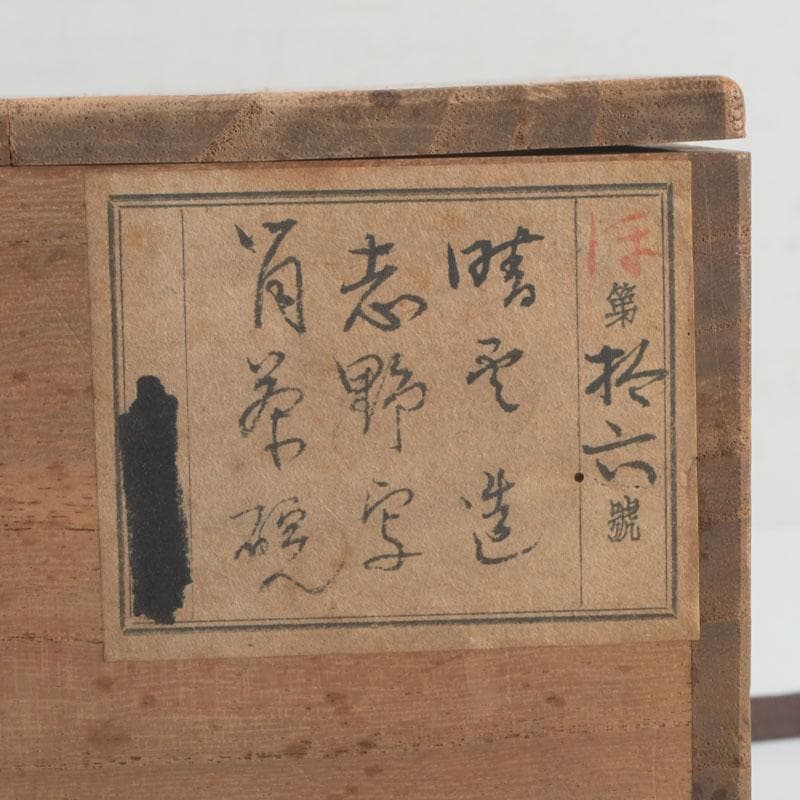 第拾六號
晴雲造
志野写
茶碗